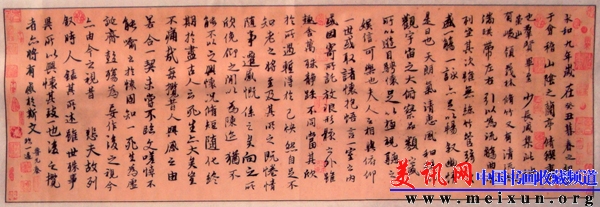 永和九年歲在癸丑暮春之初
于會稽山陰之蘭亭脩禊事
也羣賢畢至少長咸集此
有峻領茂林脩竹又有清流
湍暎帶左右引以為流觴曲
列坐其次雖無絲竹管弦
盛一觴一詠亦足以暢敘幽
是日也天朗氣清惠風和暢
觀宇宙之大俯察品類之盛
所以遊目騁懷足以極視聽之
娛信可樂也夫人之相與俯仰
一世或取諸懷抱悟言一室之內
或因寄所託放浪形骸之外雖
趣舍萬殊靜躁不同當其欣
於所遇蹔得於己怏然自足不
知老之將至及其所之既惓情
隨事遷感慨係之矣向之所
欣俛仰之閒以為陳迹猶不
能不以之興懷況脩短隨化終
期於盡古人云死生亦大矣豈
不痛哉每攬昔人興感之由
若合一契未嘗不臨文嗟悼不
能喻之於懷固知一死生為虛
誕齊彭殤為妄作後之視今
亦由今之視昔悲夫故列
敘時人錄其所述雖世殊事
異所以興懷其致一也後之攬
者亦將有感於斯文
美讯网 中国书画收藏频道
www.meixun.net